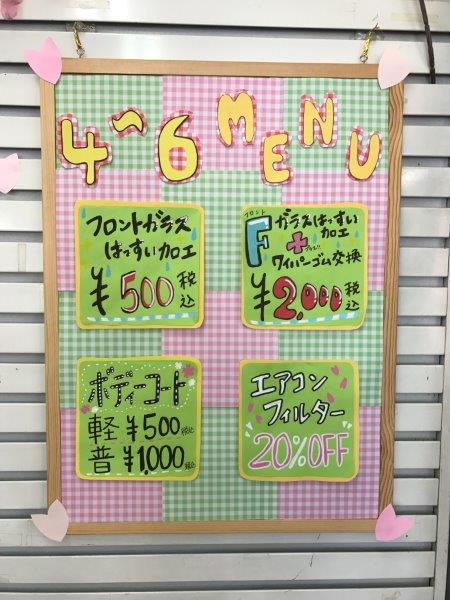 4~6 MENU
フロントガラス
はっすい加工
¥500 税込
フロント
Fガラスはっすい
加工
+プラス!!
ワイパーゴム交換
¥2,000 税込
ボディーコート
軽 ¥500 税込
普 ¥1,000 税込
エアコン
フィルター
20%OFF